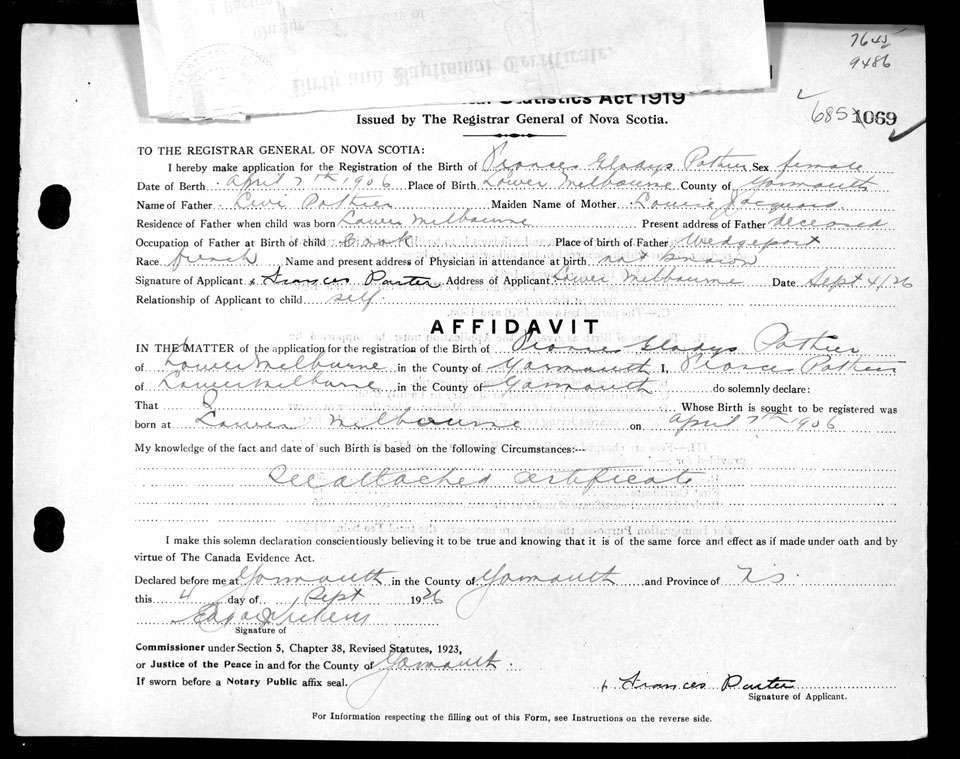 7645
9486
Birth and Baptismal Certificate.
Statistics Act 1919
685 1069
Issued by The Registrar General of Nova Scotia.
TO THE REGISTRAR GENERAL OF NOVA SCOTIA:
I hereby make application for the Registration of the Birth of Frances Gladys Pothier Sex female
Date of Birth April 7th 1906 Place of Birth Lower Melbourne County of Yarmouth
Name of Father Levi Pothier Maiden Name of Mother Louise Jacquard
Residence of Father when child was born Lower Melbourne Present address of Father deceased
Occupation of Father at Birth of child Cook Place of birth of Father Wedgeport
Race french Name and present address of Physician in attendance at birth not known
Signature of Applicant x Frances Porter Address of Applicant Lower Melbourne Date Sept 4/26
Relationship of Applicant to child self
AFFIDAVIT
IN THE MATTER of the application for the registration of the Birth of Gladys Pothier
of Lower Melburne in the County of Yarmouth I, Frances Pothier
of Lower Melburne in the County of Yarmouth do solemnly declare:
That I Whose Birth is sought to be registered was
born at Lower Melbourne on April 7th 1906
My knowledge of the fact and date of such Birth is based on the following Circumstances:—
See attached certificate
I make this solemn declaration conscientiously believing it to be true and knowing that it is of the same force and effect as if made under oath and by
virtue of The Canada Evidence Act.
Declared before me at Yarmouth in the County of Yarmouth and Province of N.S.
this 4 day of Sept 1926
Signature of
Commissioner under Section 5, Chapter 38, Revised Statutes, 1923,
or Justice of the Peace in and for the County of Yarmouth
If sworn before a Notary Public affix seal.
x Frances Porter
Signature of Applicant.
For Information respecting the filling out of this Form, see Instructions on the reverse side.